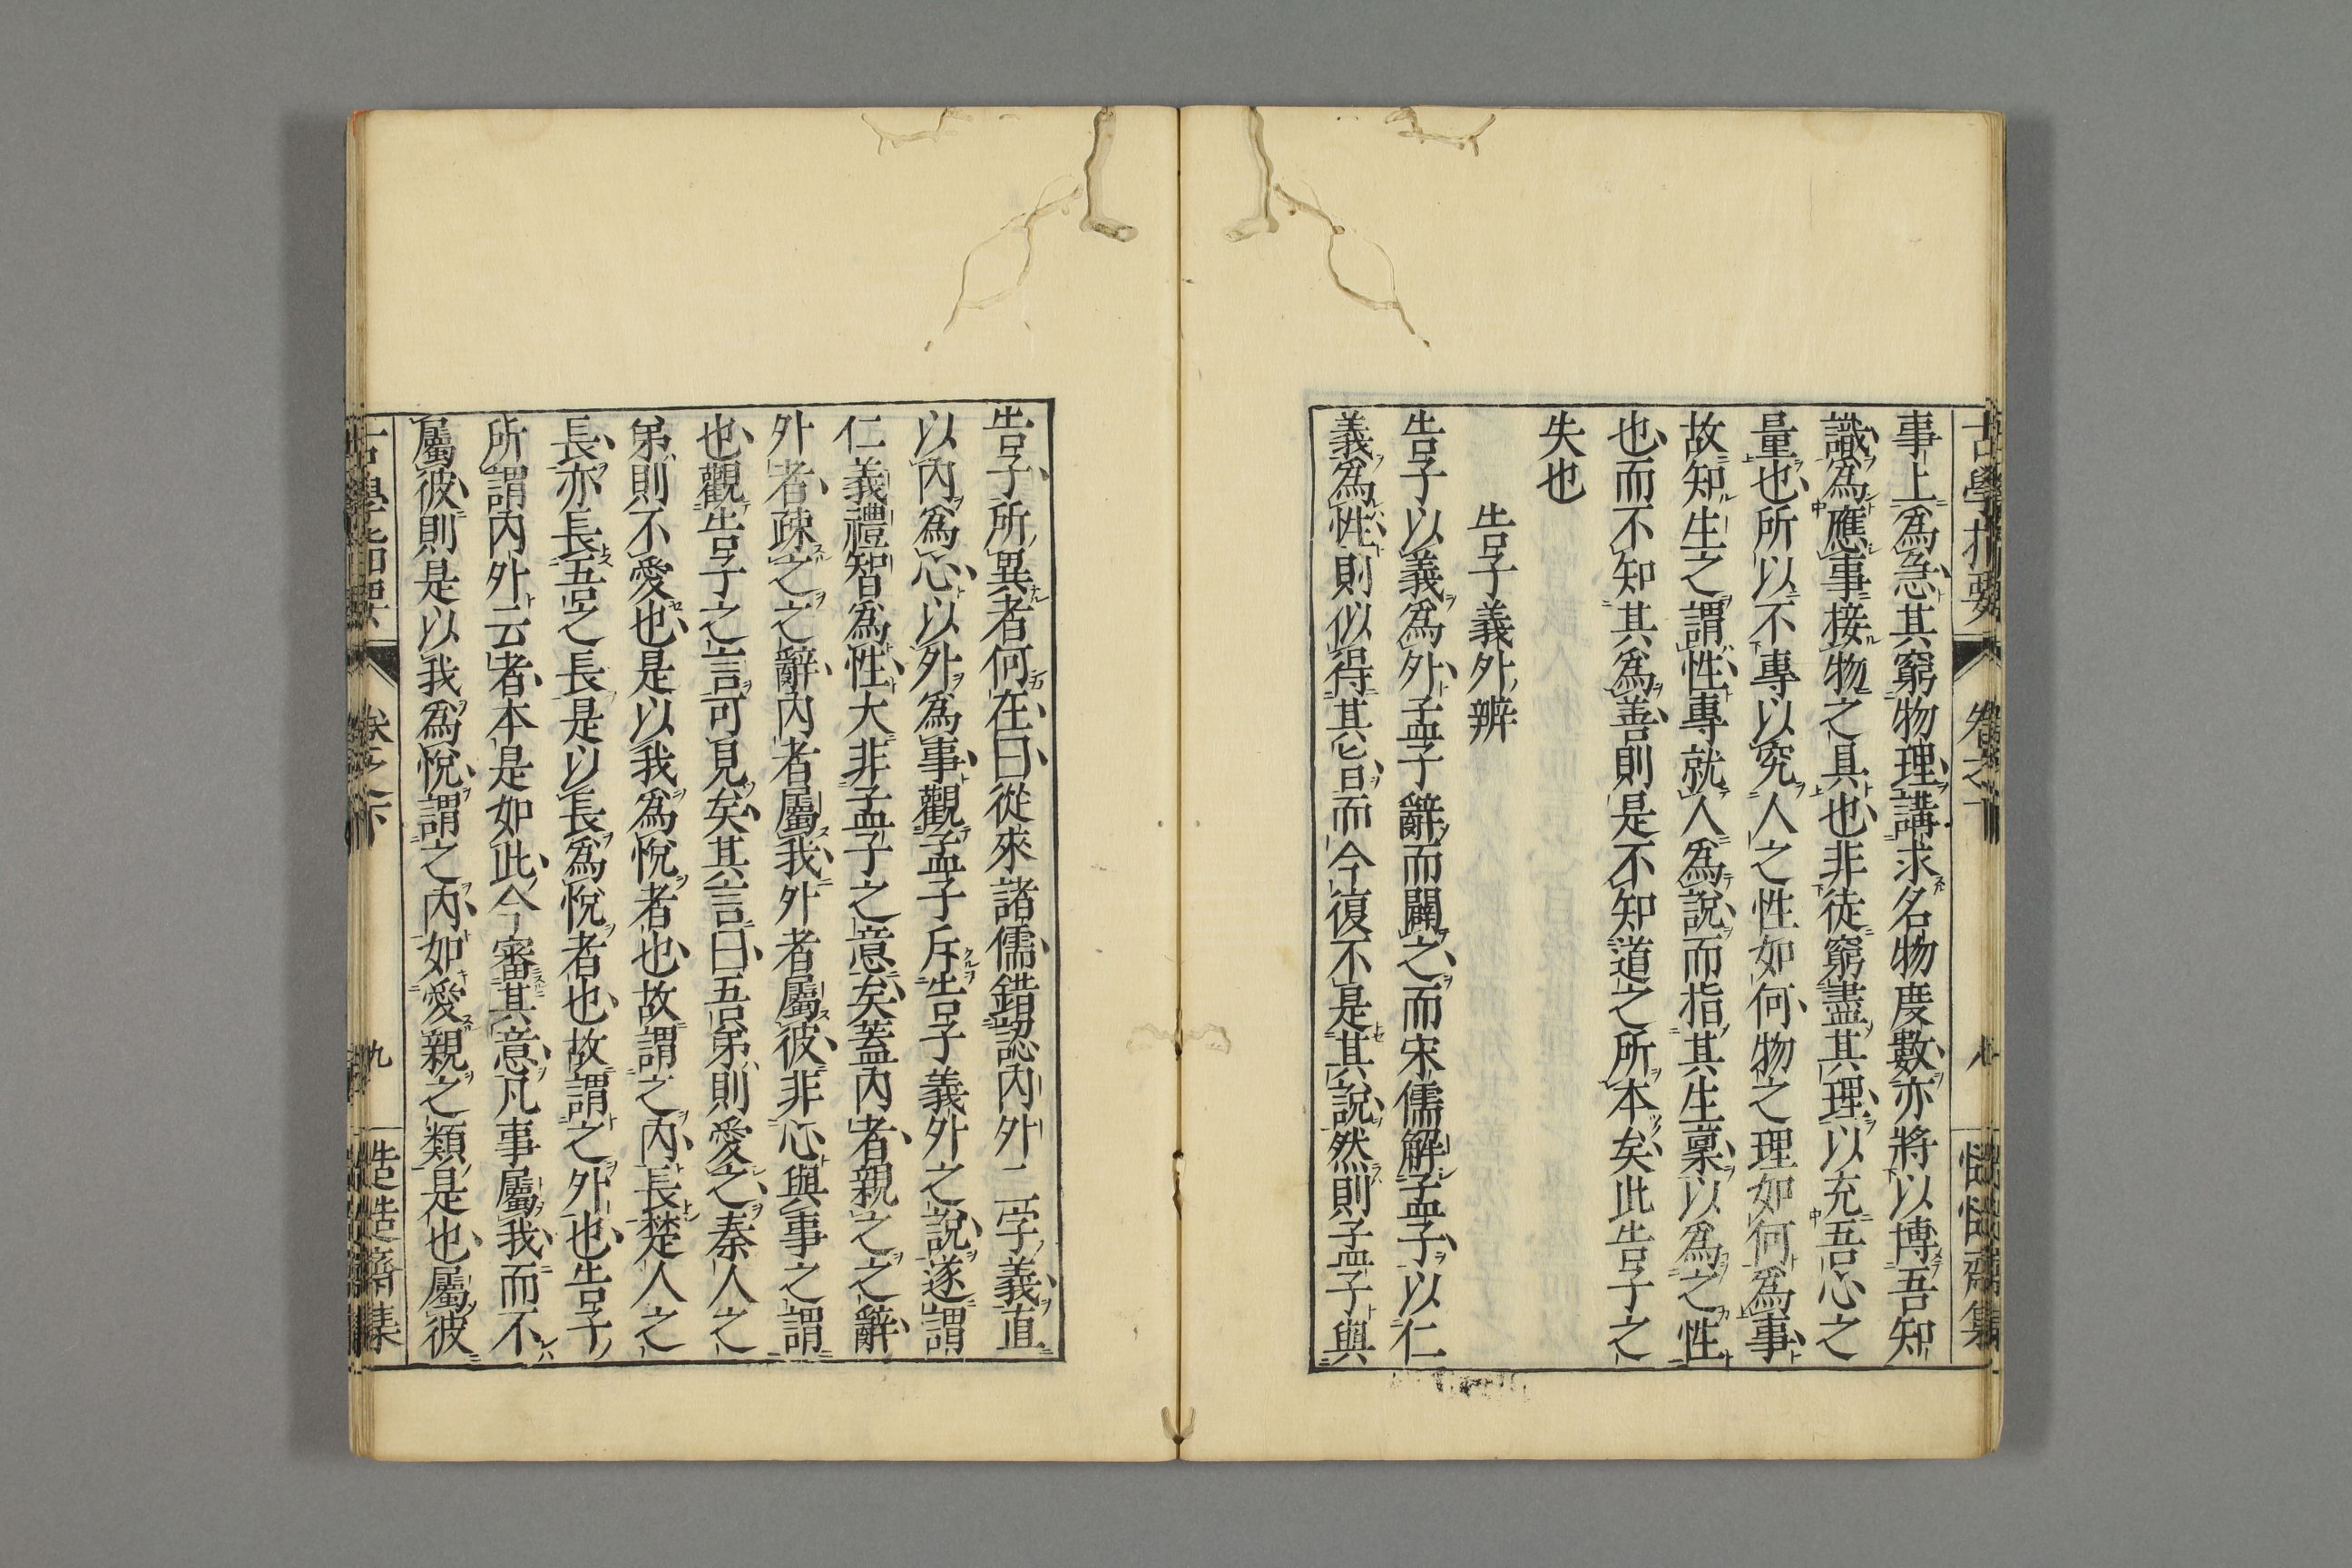 事上爲急其窮物理講求名物度數亦將以博吾知
識爲應事接物之具也非徒窮盡其理以充吾心之
量也所以不專以究人之性如何物之理如何爲事
故知生之謂性專就人爲說而指其生稟以爲之性
也而不知其爲善則是不知道之所本矣此告子之
失也
告子義外辨
告子以義爲外孟子辭而闢之而宋儒解孟子以仁
義爲性則似得其旨而今復不是其說然則孟子與
告子所異者何在曰從來諸儒錯認內外二字義直
以內爲心以外爲事觀孟子斥告子義外之說遂謂
仁義禮智爲性大非孟子之意矣蓋內者親之之辭
外者疎之之辭內者屬我外者屬彼非心與事之謂
也觀告子之言可見矣其言曰吾弟則愛之秦人之
弟則不愛也是以我爲悅者也故謂之內長楚人之
長亦長吾之長是以長爲悅者也故謂之外也告子
所謂內外云者本是如此今審其意凡事屬我而不
屬彼則是以我爲悅謂之內如愛親之類是也屬彼
九